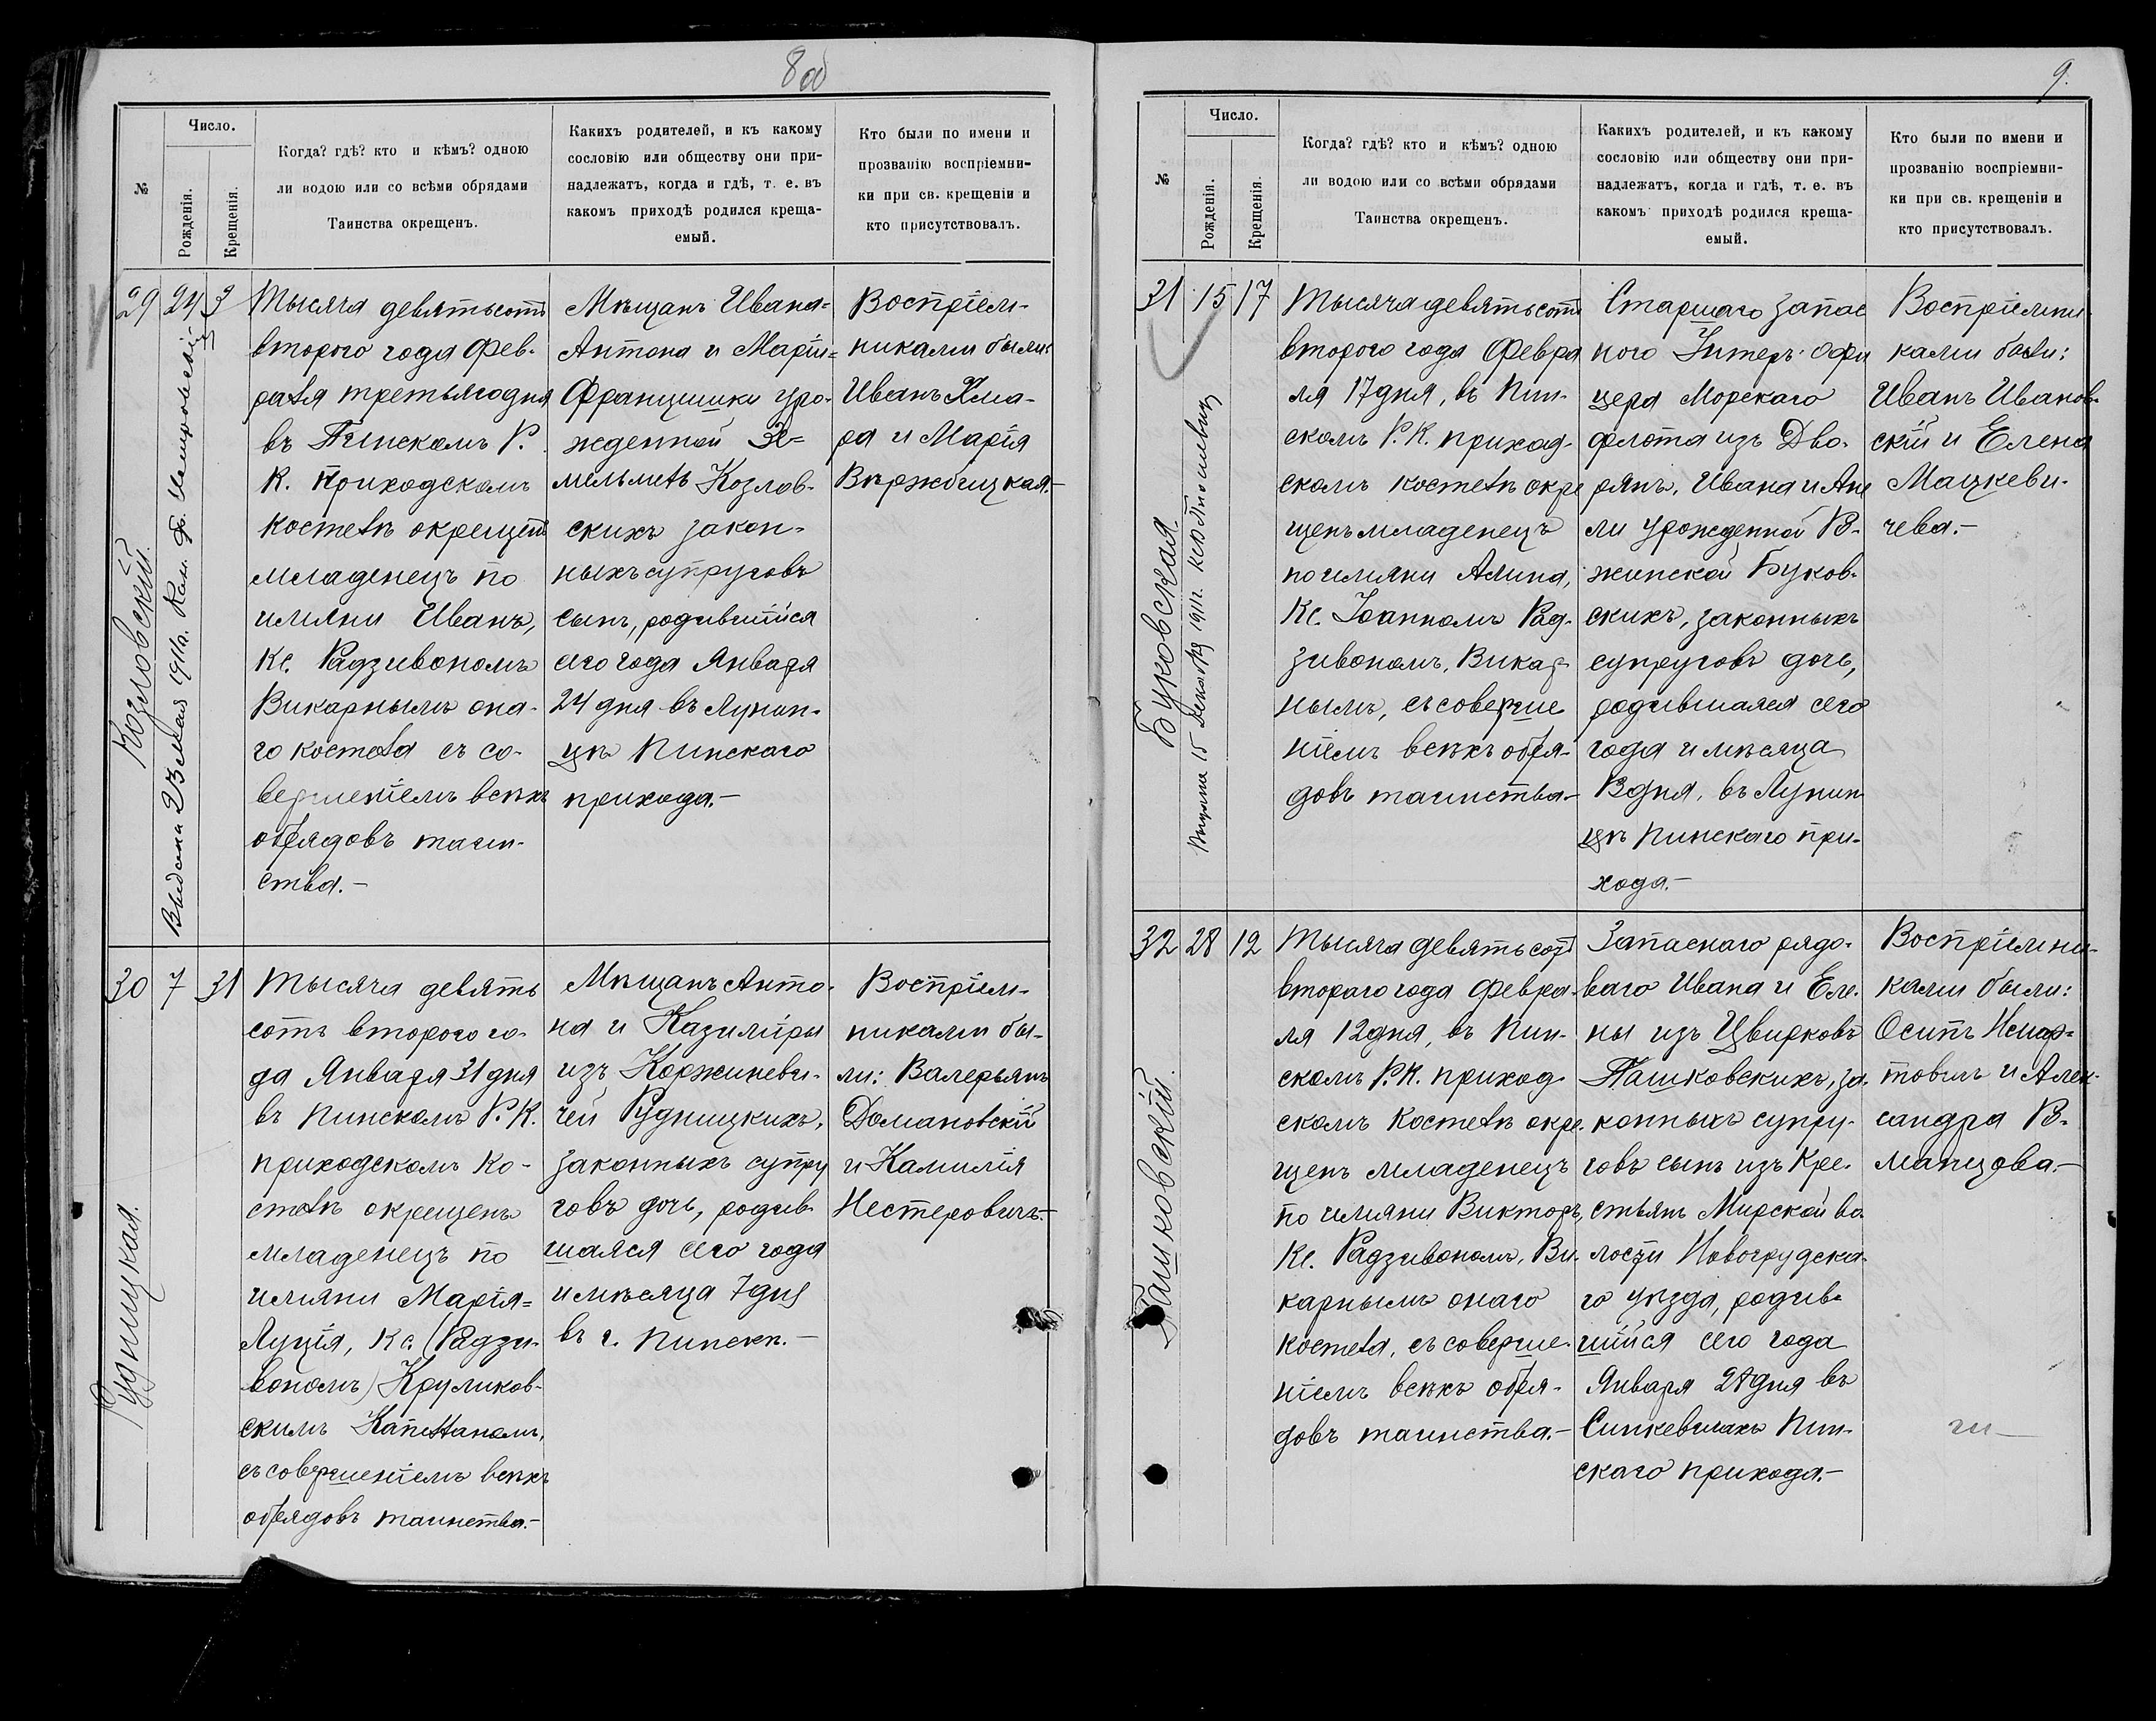 8 об
№
Число.
Рожденія.
Крещенія.
Когда? гдѣ? кто и кѣмъ? одною
ли водою или со всѣми обрядами
Таинства окрещенъ.
Какихъ родителей, и къ какому
сословію или обществу они при-
надлежатъ, когда и гдѣ, т. е. въ
какомъ приходѣ родился креща-
емый.
Кто были по имени и
прозванію воспріемни-
ки при св. крещеніи и
кто присутствовалъ.
29
24
3
Козловскій.
Выдана 23 Мая 1911г.
Тысяча девятьсотъ
второго года Фев-
раля третьяго дня
въ Пинскомъ Р.
К. приходскомъ
костелѣ окрещенъ
младенецъ по
имяни Иванъ,
Кс. Радзивономъ
Викарнымъ она-
го костела съ со-
вершеніемъ всѣхъ
обрядовъ таин-
ства.-
Мѣщанъ Ивана=
Антона и Маріи=
Францишки уро-
жденной
Козлов-
скихъ закон-
ныхъ супруговъ
сынъ, родившійся
сего года Января
24 дня въ Лунин-
цѣ Пинскаго
прихода.-
Воспріем-
никами были:
Иванъ Хма-
ра и Марія
Вѣржбицкая.-
30
7
31
Рудницкая.
Тысяча девять
сотъ второго го-
да Января 31 дня
въ Пинскомъ Р. К.
приходскомъ ко-
стелѣ окрещенъ
младенецъ по
имяни Марія=
Луція, Кс. (Радзи-
вономъ) Круликов-
скимъ Капелланомъ,
съ совершеніемъ всѣхъ
обрядовъ таинства.-
Мѣщанъ Анто-
на и Казиміры
изъ Коржиневи-
чей Рудницкихъ,
законныхъ супру
говъ дочь, родив-
шаяся сего года
и мѣсяца 7 дня
въ г. Пинскѣ.-
Воспріем-
никами бы-
ли: Валерьянъ
Домановскій
и Камилія
Нестеровичъ.-
9.
№
Число.
Рожденія.
Крещенія.
Когда? гдѣ? кто и кѣмъ? одною
ли водою или со всѣми обрядами
Таинства окрещенъ.
Какихъ родителей, и къ какому
сословію или обществу они при-
надлежатъ, когда и гдѣ, т. е. въ
какомъ приходѣ родился креща-
емый.
Кто были по имени и
прозванію воспріемни-
ки при св. крещеніи и
кто присутствовалъ.
31
15
17
Буковская.
Выдана 15 1911г.
Тысяча девятьсотъ
второго года Февра
ля 17 дня, въ Пин-
скомъ Р. К. приход-
скомъ костелѣ окре
щенъ младенецъ
по имяни Алина,
Кс. Іоанномъ Рад-
зивономъ, Викар-
нымъ, съ соверше
ніемъ всѣхъ обря-
довъ таинства.-
Старшаго запас
ного Унтеръ-офи
цера Морскаго
флота изъ Дво-
рянъ, Ивана и Ане
ли урожденной В-
жинской Буков-
скихъ, законныхъ
супруговъ дочь,
родившаяся сего
года и мѣсяца
дня, въ Лунин
цѣ Пинскаго при-
хода.-
Воспріемни-
ками были:
Иванъ Иванов-
скій и Елена
Мацкеви-
чева.-
32
28
12
Пашковскій.
Тысяча девятьсотъ
второго года Февра-
ля 12 дня, въ Пин-
скомъ Р. К. приход
скомъ костелѣ окре-
щенъ младенецъ
по имяни Викторъ,
Кс. Радзивономъ, Ви-
карнымъ онаго
костела, съ соверше-
ніемъ всѣхъ обря-
довъ таинства.-
Запаснаго рядо-
ваго Ивана и Еле-
ны изъ Цвирковъ
Пашковскихъ, за-
конныхъ супру-
говъ сынъ изъ Кре-
стьянъ Мирской во-
лости Новогрудска-
го уѣзда, родив-
шійся сего года
Января 28 дня въ
Синкевичахъ Пин-
скаго прихода.-
Воспріемни-
ками были:
Осипъ
и Алек-
сандра В-
манцова.-